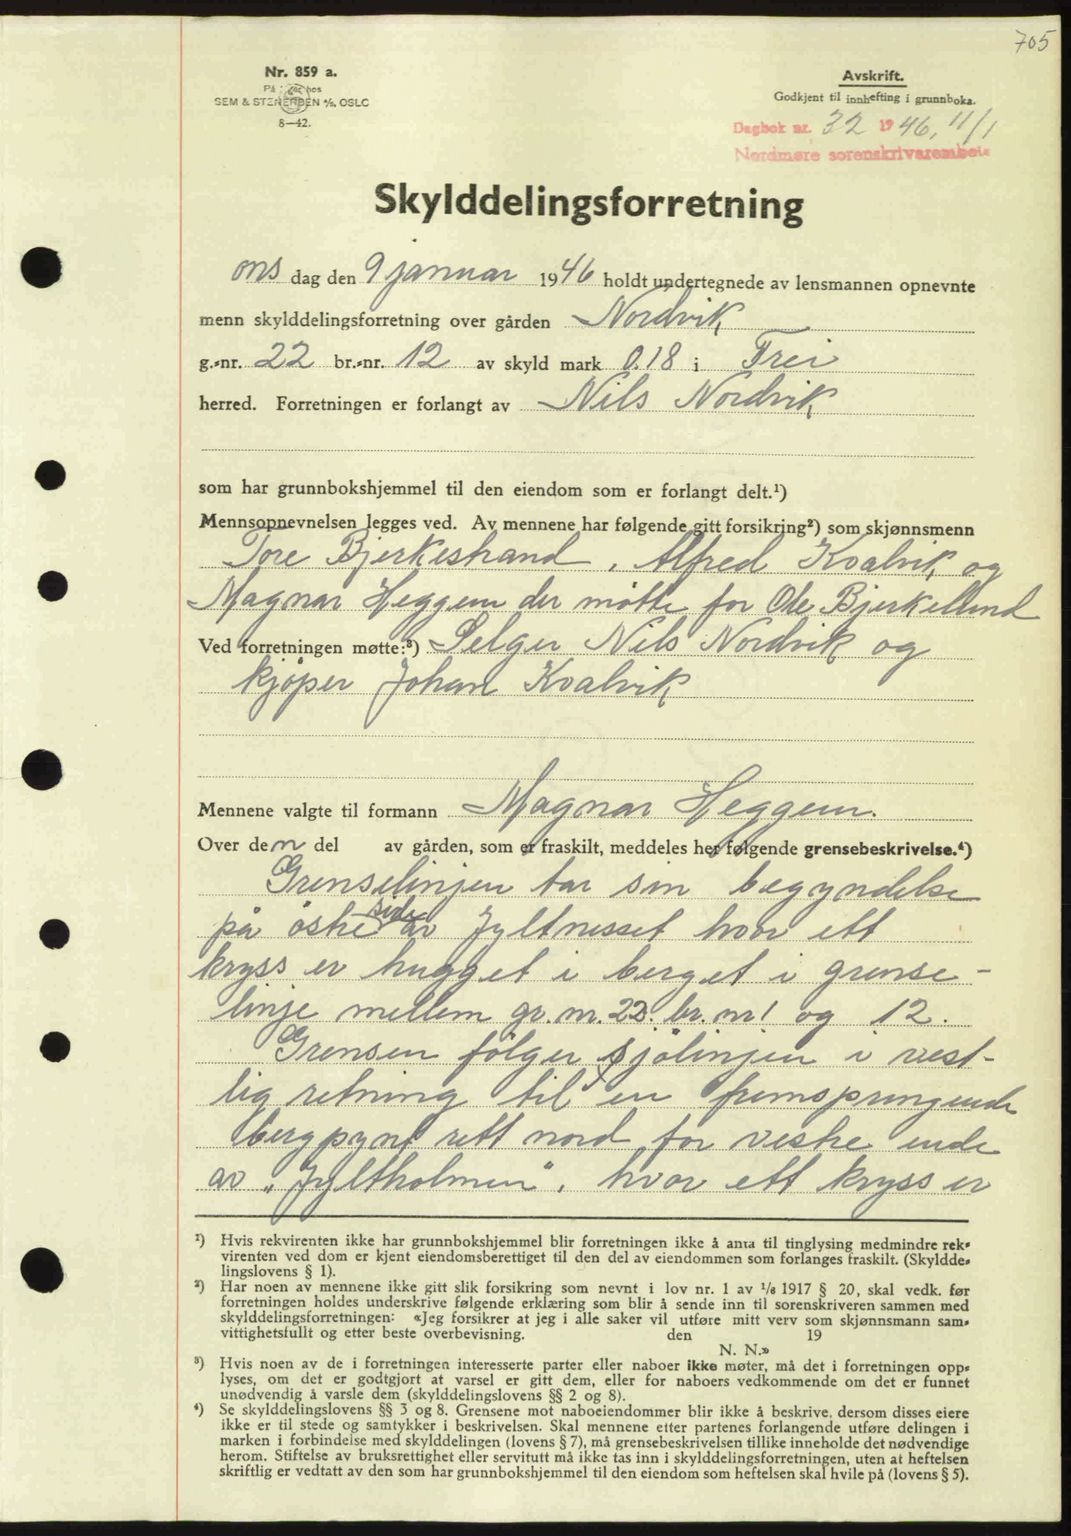 705
Nr. 859 a.
Avskrift.
Godkjent til innhefting i grunnboka.
SEM & STENERSEN A/S, OSLO
8—42.
Dagbok nr. 32 1946, 11/1
Nordmøre sorenskriverembete
Skylddelingsforretning
ons dag den 9 januar 1946 holdt undertegnede av lensmannen opnevnte
menn skylddelingsforretning over gården Nordvik
g.-nr. 22 br.-nr. 12 av skyld mark 0.18 i Frei
herred. Forretningen er forlangt av Nils Nordvik
som har grunnbokshjemmel til den eiendom som er forlangt delt.¹)
Mennsopnevnelsen legges ved. Av mennene har følgende gitt forsikring²) som skjønnsmenn
Tore Bjerkestrand, Alfred Kvalvik og
Magnar Heggem der møtte for Ole Bjerkelund
Ved forretningen møtte:³) Selger Nils Nordvik og
kjøper Johan Kvalvik
Mennene valgte til formann Magnar Heggem.
Over den del av gården, som er fraskilt, meddeles her følgende grensebeskrivelse.⁴)
Grenselinjen tar sin begyndelse
på östre side av Jyltnesset hvor ett
kryss er hugget i berget i grense-
linje mellem gr. nr. 22. br. nr 1 og 12.
Grensen fölger sjölinjen i vest-
lig retning til en fremspringende
bergpynt rett nord for vestre ende
av "Jyltholmen", hvor ett kryss er
¹) Hvis rekvirenten ikke har grunnbokshjemmel blir forretningen ikke å anta til tinglysing medmindre rek-
virenten ved dom er kjent eiendomsberettiget til den del av eiendommen som forlanges fraskilt. (Skyldde-
lingslovens § 1).
²) Har noen av mennene ikke gitt slik forsikring som nevnt i lov nr. 1 av 1/6 1917 § 20, skal vedk. før
forretningen holdes underskrive følgende erklæring som blir å sende inn til sorenskriveren sammen med
skylddelingsforretningen: «Jeg forsikrer at jeg i alle saker vil utføre mitt verv som skjønnsmann sam-
vittighetsfullt og etter beste overbevisning. den 19
N. N.»
³) Hvis noen av de i forretningen interesserte parter eller naboer ikke møter, må det i forretningen opp-
lyses, om det er godtgjort at varsel er gitt dem, eller for naboers vedkommende om det er funnet
unødvendig å varsle dem (skylddelingslovens §§ 2 og 8).
⁴) Se skylddelingslovens §§ 3 og 8. Grensene mot naboeiendommer blir ikke å beskrive, dersom disses eiere
ikke er til stede og samtykker i beskrivelsen. Skal mennene etter partenes forlangende utføre delingen i
marken i forbindelse med skylddelingen (lovens § 7), må grensebeskrivelsen tillike inneholde det nødvendige
herom. Stiftelse av bruksrettighet eller servitutt må ikke tas inn i skylddelingsforretningen, uten at heftelsen
skriftlig er vedtatt av den som har grunnbokshjemmel til den eiendom som heftelsen skal hvile på (lovens § 5).